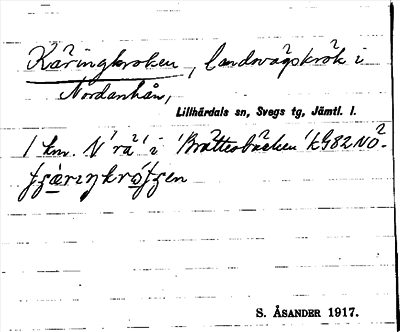 Käringkroken, landsvägskrök i
Nordanhån,
Lillhärdals sn, Svegs tg, Jämtl. l.
1 km. N 'rå' i 'Brättesbäcken' kG82NÖ.
S. ÅSANDER 1917.